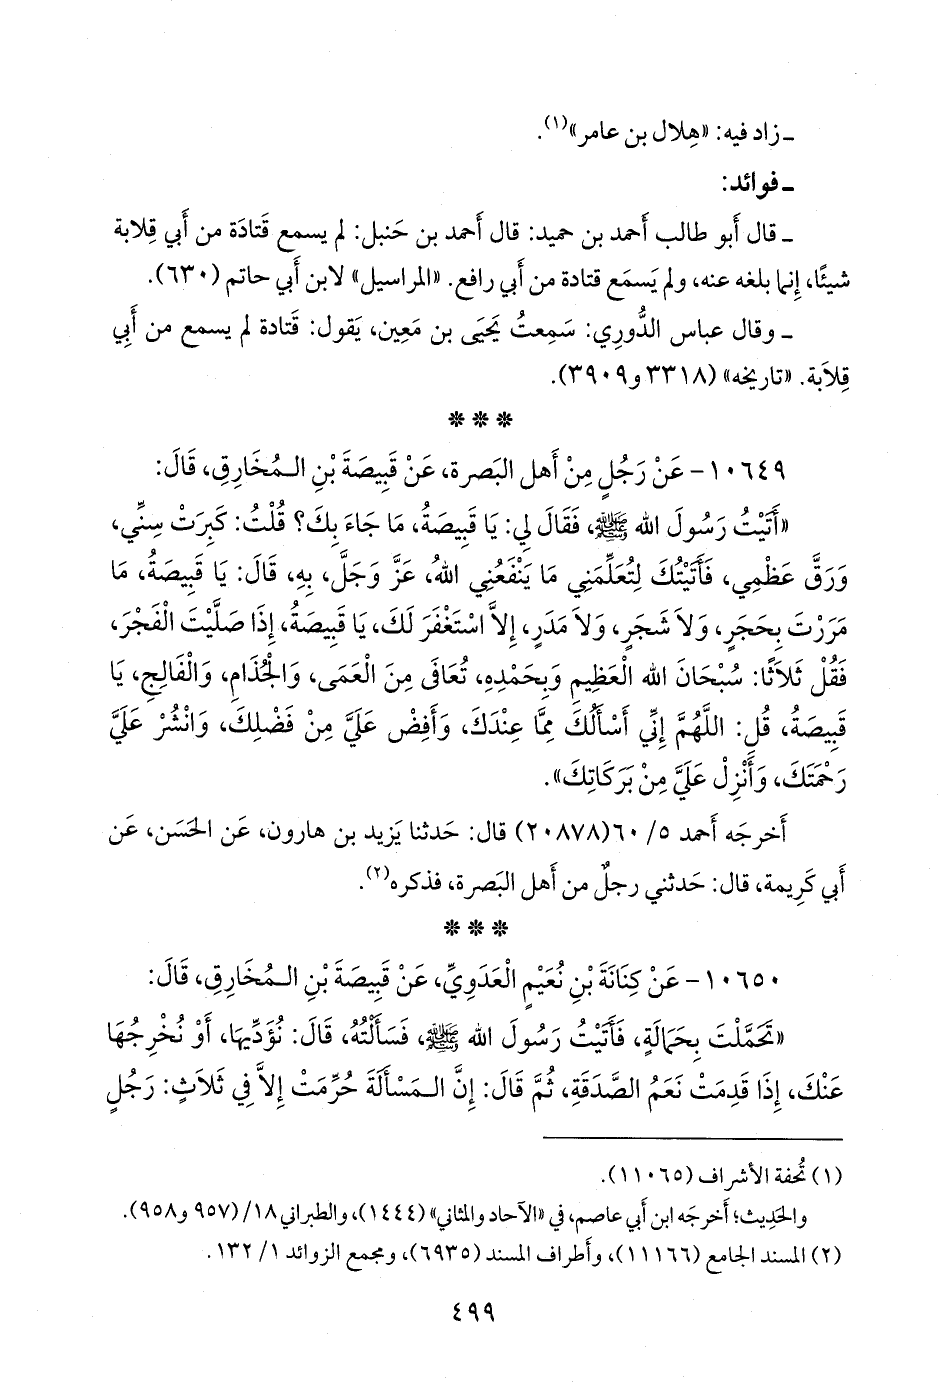 ـ زاد فيه: «هِلال بن عامر»(١).
ـ فوائد:
ـ قال أَبو طالب أَحمد بن حميد: قال أَحمد بن حَنبل: لم يسمع قَتادَة من أَبي قِلابة
شيئًا، إِنما بلغه عنه، ولم يَسمَع قتادة من أَبي رافع. «المراسيل» لابن أَبي حاتم (٦٣٠).
ـ وقال عباس الدُّورِي: سَمِعتُ يَحيَى بن مَعِين، يَقول: قَتادة لم يسمع من أَبِي
قِلاَبة. «تاريخه» (٣٣١٨ و٣٩٠٩).
* * *
١٠٦٤٩ - عَنْ رَجُلٍ مِنْ أَهل البَصرة، عَنْ قَبِيصَةَ بْنِ الـمُخَارِقِ، قَالَ:
«أَتَيْتُ رَسُولَ الله ﷺ، فَقَالَ لِي: يَا قَبِيصَةُ، مَا جَاءَ بِكَ؟ قُلْتُ: كَبِرَتْ سِنِّي،
وَرَقَّ عَظْمِي، فَأَتَيْتُكَ لِتُعَلِّمَنِي مَا يَنْفَعُنِي اللهُ، عَزَّ وَجَلَّ، بِهِ، قَالَ: يَا قَبِيصَةُ، مَا
مَرَرْتَ بِحَجَرٍ، وَلاَ شَجَرٍ، وَلاَ مَدَرٍ، إِلاَّ اسْتَغْفَرَ لَكَ، يَا قَبِيصَةُ، إِذَا صَلَّيْتَ الْفَجْرَ،
فَقُلْ ثَلاَثًا: سُبْحَانَ الله الْعَظِيمِ وَبِحَمْدِهِ، تُعَافَى مِنَ الْعَمَى، وَالْجُذَامِ، وَالْفَالِجِ، يَا
قَبِيصَةُ، قُلِ: اللَّهُمَّ إِنِّي أَسْأَلُكَ مِمَّا عِنْدَكَ، وَأَفِضْ عَلَيَّ مِنْ فَضْلِكَ، وَانْشُرْ عَلَيَّ
رَحْمَتَكَ، وَأَنْزِلْ عَلَيَّ مِنْ بَرَكَاتِكَ».
أَخرجَه أَحمد ٥/ ٦٠(٢٠٨٧٨) قال: حَدثنا يَزيد بن هارون، عَن الحَسَن، عَن
أَبي كَرِيمة، قال: حَدثني رجلٌ من أَهل البَصرة، فذكره(٢).
* * *
١٠٦٥٠ - عَنْ كِنَانَةَ بْنِ نُعَيْمٍ الْعَدَوِيِّ، عَنْ قَبِيصَةَ بْنِ الـمُخَارِقِ، قَالَ:
«تَحَمَّلْتُ بِحَمَالَةٍ، فَأَتَيْتُ رَسُولَ الله ﷺ، فَسَأَلْتُهُ، قَالَ: نُؤَدِّيهَا، أَوْ نُخْرِجُهَا
عَنْكَ، إِذَا قَدِمَتْ نَعَمُ الصَّدَقَةِ، ثُمَّ قَالَ: إِنَّ الـمَسْأَلَةَ حُرِّمَتْ إِلاَّ فِي ثَلاَثٍ: رَجُلٍ
(١) تُحفة الأشراف (١١٠٦٥).
والحَدِيث؛ أَخرجَه ابن أَبي عاصم، في «الآحاد والمثاني» (١٤٤٤)، والطبراني ١٨/ (٩٥٧ و٩٥٨).
(٢) المسند الجامع (١١١٦٦)، وأَطراف المسند (٦٩٣٥)، ومجمع الزوائد ١/ ١٣٢.
٤٩٩